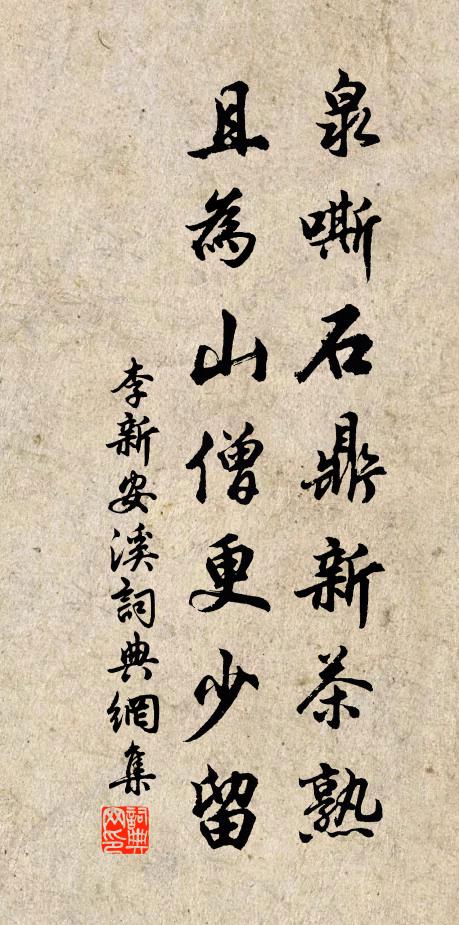 泉嘶石鼎新茶熟
且為山僧更少留
李新安溪詞典網集
詞典
网印